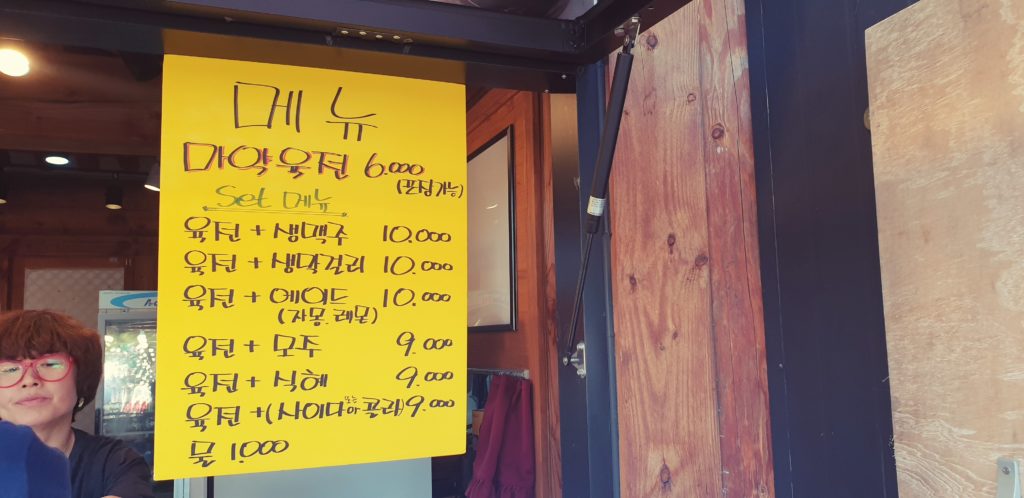 메뉴
마약육전 6.000
(포장가능)
Set 메뉴
육전 + 생맥주 10.000
육전 + 생막걸리 10.000
육전 + 에이드 10.000
(자몽.레몬)
육전 + 모주 9.000
육전 + 식혜 9.000
육전 + (사이다 또는 콜라) 9.000
물 1.000